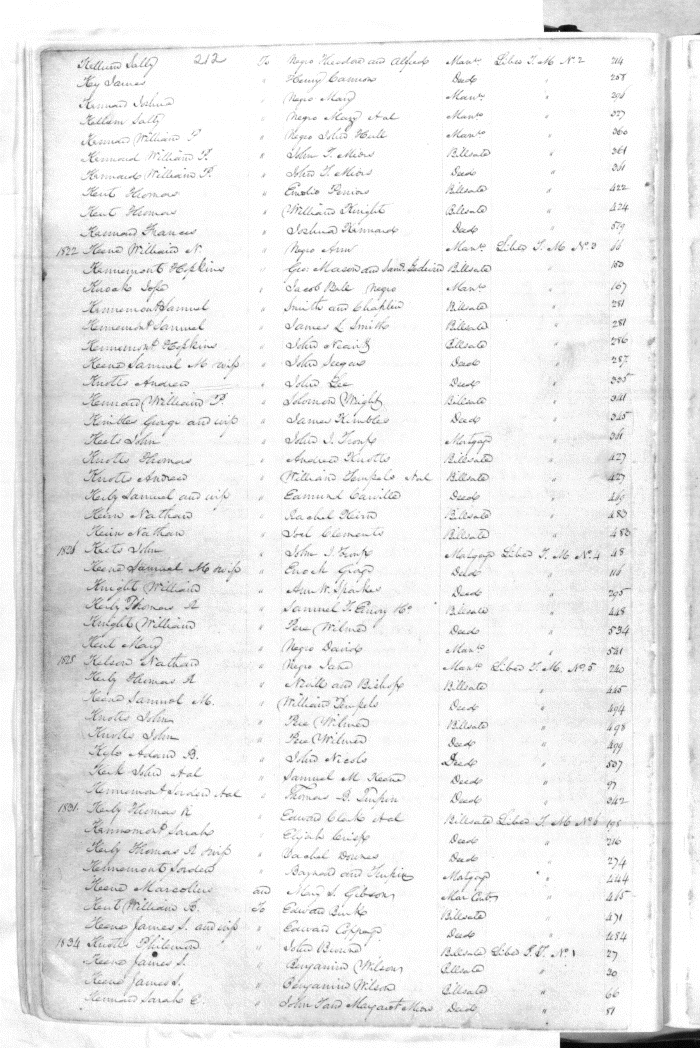 Kellum Sally 212 To Negro Theodore and Alfred Man.. Liber T. M No 2 214
Key James " Henry Cannon Deed " 258
Kennard Joshua " Negro Mary Man.. " 291
Kellum Sally " Negro Mary & al Man.. " 327
Kennard William P. " Negro John Hull Man.. " 360
Kennard William P. " John T. Miers Billsale " 361
Kennard William P. " John T. Miers Deed " 361
Kent Thomas " Billsale " 422
Kent Thomas " William Knight Billsale " 424
Kennard Frances " Joshua Kennard Deed " 579
1822 Keene William N. " Negro Ann Man.. Liber T. M No 3 66
Kinnemont Hopkins " Geo: Mason and Billsale " 150
Knock " Jacob Bell negro Man.. " 167
Kinnemont Samuel " Smith and Chaplin Billsale " 281
Kinnemont Samuel " James L Smith Billsale " 281
Kinnemont Hopkins " John Nearis Billsale " 286
Keene Samuel M wife " John Seegars Deed " 287
Knotts Andrew " John Lee Deed " 335
Kennard William P. " Solomon Wright Billsale " 341
Kimbles George and wife " James Kimbles Deed " 345
Keets John " John I. Thomp Mortgage " 361
Knotts Thomas " Andrew Knotts Billsale " 427
Knotts Andrew " William Temple & al Billsale " 427
Kerby Samuel and wife " Edmund Carville Deed " 449
Keirn Nathan " Rachel Keirn Billsale " 483
Keirn Nathan " Joel Clements Billsale " 483
Keets John " John I Thomp Mortgage Liber T. M. No 4 48
Keene Samuel M wife " Enoch George Deed " 116
Knight William " Ann W. Sparkes Deed " 295
Kerby Thomas " Samuel Billsale " 448
Knight William " Pere Wilmer Deed " 534
Kent Mary " Negro David Man.. " 541
1828 Kelson Nathan " Negro Jane Man.. Liber T. M. No 5 260
Kerby Thomas R " Neville and Bishop Billsale " 445
Keene Samuel M. " William Temple Deed " 494
Knotts John " Pere Wilmer Billsale " 498
Knotts John " Pere Wilmer Deed " 499
Kyle Adam B. " John Nicols Deed " 507
Keck John & al " Samuel M. Keene Deed " 97
Kinnemont Sorden & al " Thomas B. Turpin Deed " 342
1831 Kerby Thomas R " Edward Clark & al Billsale Liber T. M No 6 108
Kinnemont Sarah " Elijah Crisp Deed " 216
Kerby Thomas R wife " Rachel Downes Deed " 274
Kinnemont Sorden " Baynard and Turpin Mortgage " 444
Keene Marcolius and Mary S. Gibson Mar Contr " 465
Kent William B. To Edward Burk Billsale " 471
Keene James S. and wife " Edward Coppage Deed " 484
1834 Knotts Philemon " John Brown Billsale Liber No 1 27
Keene James S. " Benjamin Wilson Billsale " 30
Keene James S. " Benjamin Wilson Billsale " 66
Kennard Sarah E. " John T and Margaret Miers Deed " 81